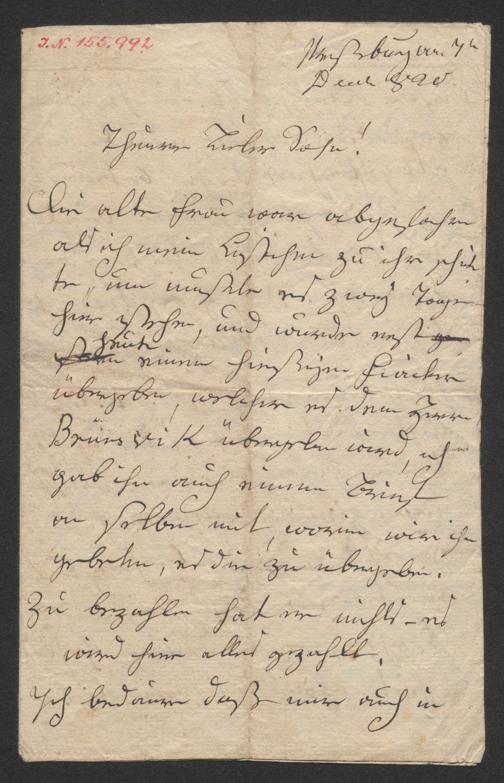 I.N. 155.992
Preßburg am 7t
Dec 828
Theurer Lieber Sohn!
Die alte Frau war abgefahren
als ich mein Kistchen zu ihr schick
te, nun mußte es zwey Tage
hier stehen, und wurde erst
heut einem hiesigen Fiacker
übergeben, welcher es dem Herrn
Brunsvik übergeben wird, ich
gab ihm auch einen Brief
an selben mit, worin wir ihn
gebethen, es dir zu übergeben.
Zu bezahlen hat er nichts – es
wird hier alles gezahlt.
Ich bedaure daß mir auch in